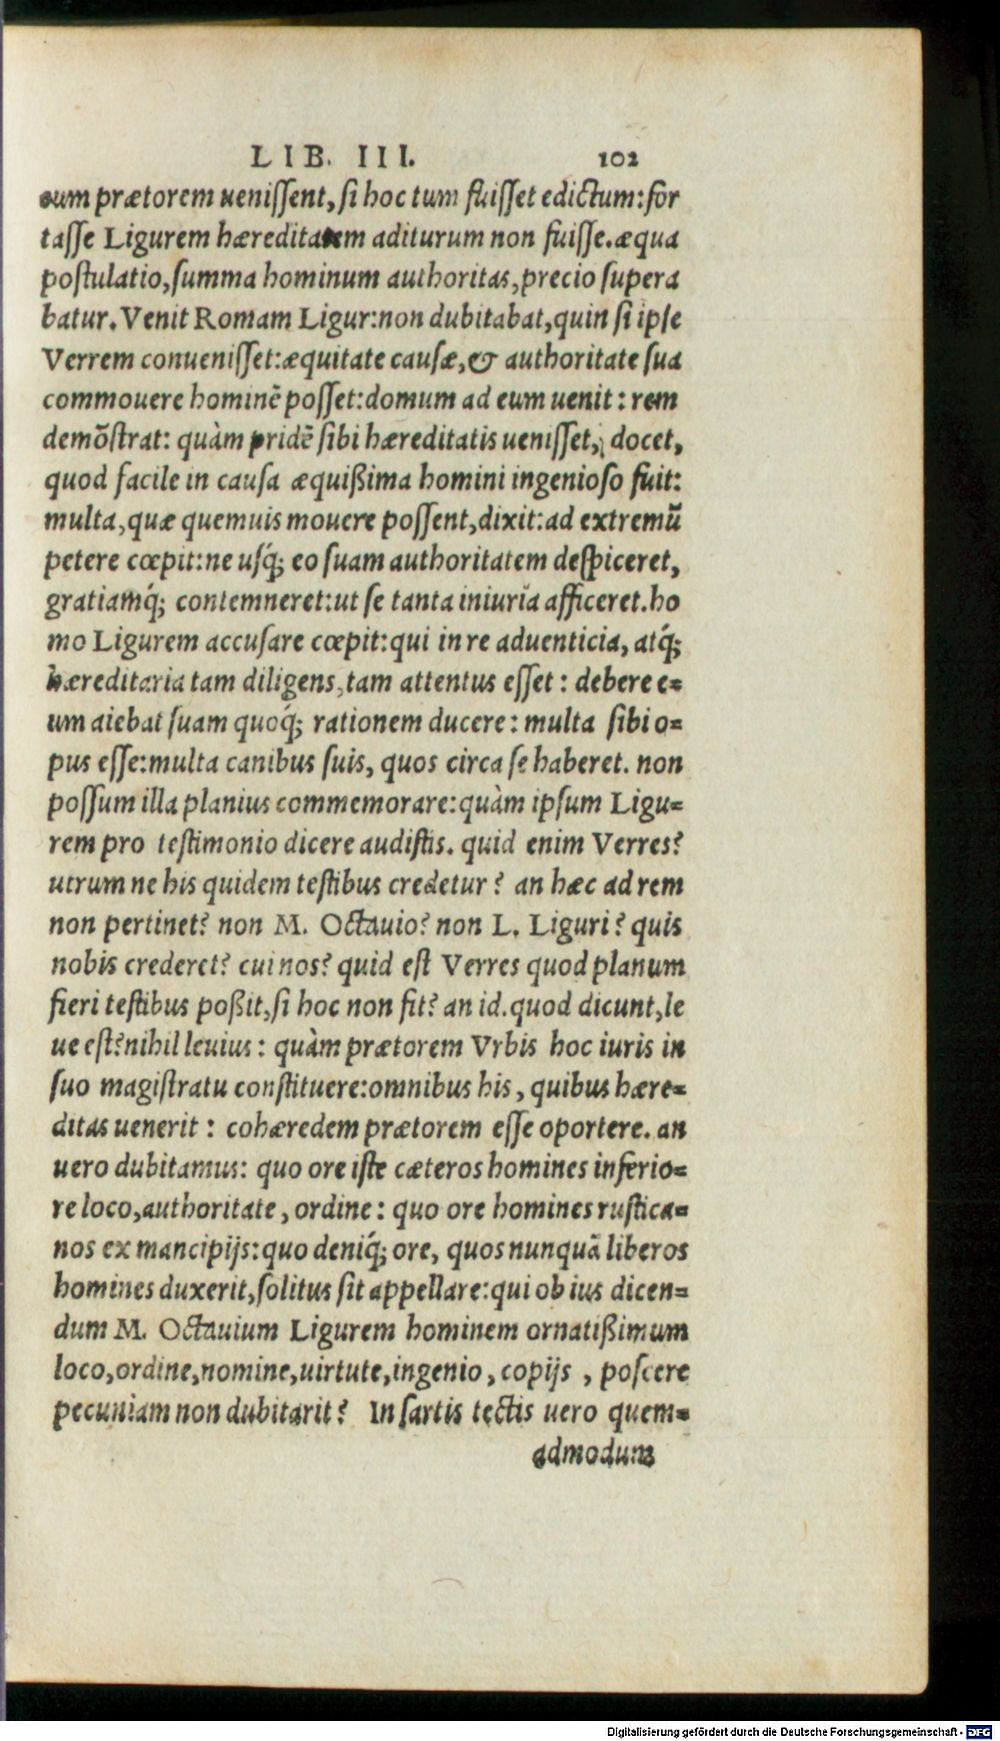 LIB. III. 102
eum prætorem uenissent, si hoc tum fuisset edictum: for
tasse Ligurem hæreditatem aditurum non fuisse. æqua
postulatio, summa hominum authoritas, precio supera
batur. Venit Romam Ligur: non dubitabat, quin si ipse
Verrem conuenisset: æquitate causæ, & authoritate sua
commouere hominẽ posset: domum ad eum uenit: rem
demõstrat: quàm pridẽ sibi hæreditatis uenisset, docet,
quod facile in causa æquißima homini ingenioso fuit:
multa, quæ quemuis mouere possent, dixit: ad extremũ
petere cœpit: ne usq́; eo suam authoritatem despiceret,
gratiamq́; contemneret: ut se tanta iniuria afficeret. ho
mo Ligurem accusare cœpit: qui in re aduenticia, atq́;
hæreditaria tam diligens, tam attentus esset: debere e-
um aiebat suam quoq́; rationem ducere: multa sibi o-
pus esse: multa canibus suis, quos circa se haberet. non
possum illa planius commemorare: quàm ipsum Ligu-
rem pro testimonio dicere audistis. quid enim Verres?
utrum ne his quidem testibus credetur? an hæc ad rem
non pertinet? non M. Octauio? non L. Liguri? quis
nobis crederet? cui nos? quid est Verres quod planum
fieri testibus poßit, si hoc non fit? an id. quod dicunt, le
ue est? nihil leuius: quàm prætorem Vrbis hoc iuris in
suo magistratu constituere: omnibus his, quibus hære-
ditas uenerit: cohæredem prætorem esse oportere. an
uero dubitamus: quo ore iste cæteros homines inferio-
re loco, authoritate, ordine: quo ore homines rustica-
nos ex mancipijs: quo deniq́; ore, quos nunquã liberos
homines duxerit, solitus sit appellare: qui ob ius dicen-
dum M. Octauium Ligurem hominem ornatißimum
loco, ordine, nomine, uirtute, ingenio, copijs, poscere
pecuniam non dubitarit? In sartis tectis uero quem-
admodum
Digitalisierung gefördert durch die Deutsche Forschungsgemeinschaft - DFG